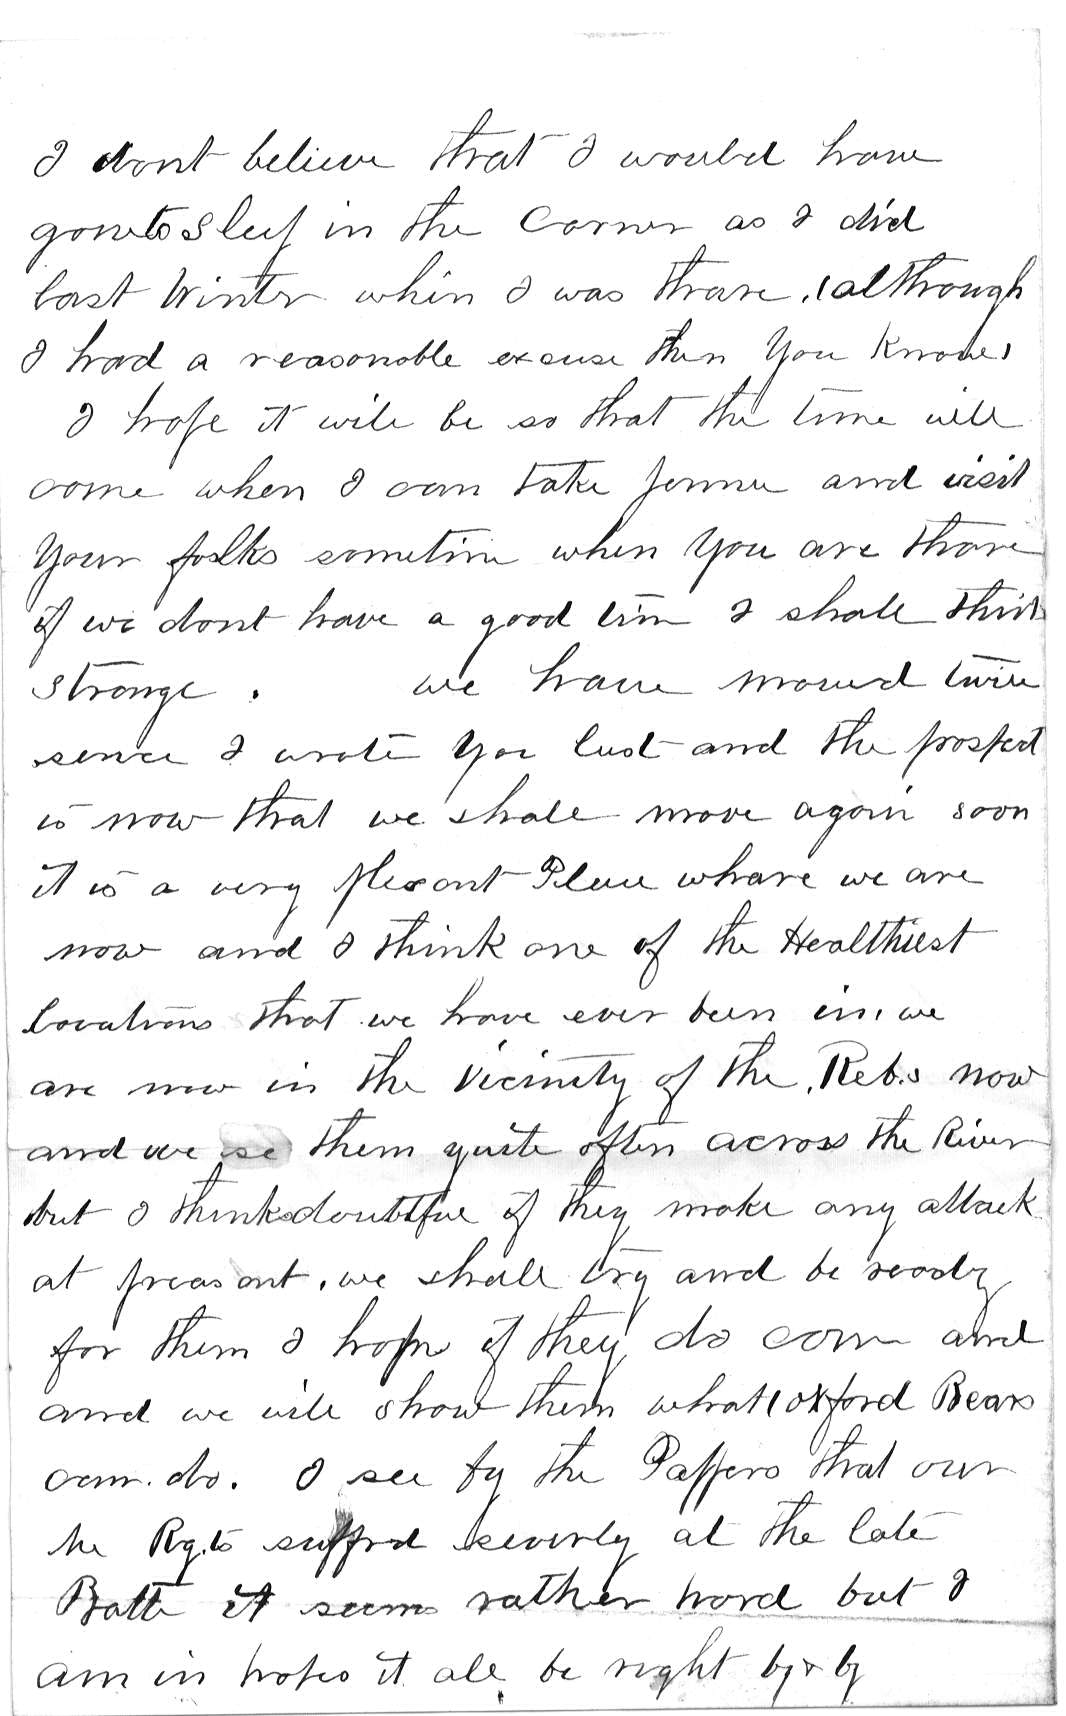 I dont believe that I would have
gone to Sleep in the Corner as I did
last Winter whin I was thare, (although
I had a reasonable excuse then You Know)
I hope it will be so that the time will
come when I can take Jennie and visit
Your folks sometim when You are thare
if we dont have a good tim I shall think
strange . we have moved twice
sence I wrote You last and the prospect
is now that we shall move again soon
it is a very plesant Place whare we are
now and I think one of the Healthiest
locations that we have ever been in, we
are now in the Vicinity of the Rebs now
and we se them quite often across the River
but I think doubtful if they make any attack
at preasant. we shall try and be ready
for them I hope if they do com and
and we will show them what (Oxford Bears
can do. I see by the Pappers that our
Me Rg.ts suffrd severly at the late
Battle it seems rather hard but I
am in hopes it all be right by & by